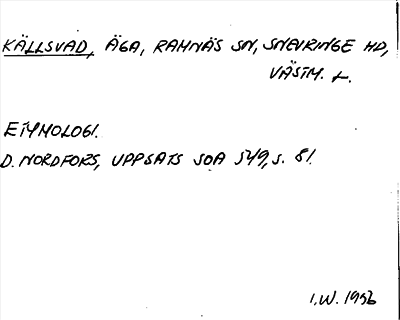 KÄLLSVAD, ÄGA, RAMNÄS SN, SNEVRINGE HD,
VÄSTM. L.
ETYMOLOGI.
D. NORDFORS, UPPSATS SOA 549, S. 81.
I.W. 1996